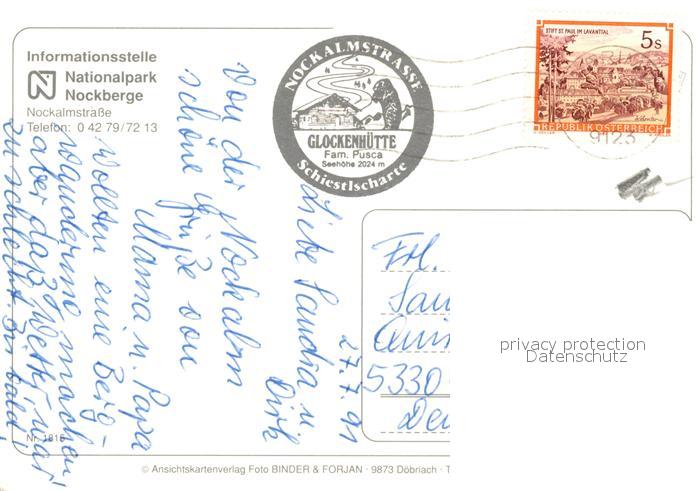 Informationsstelle
Nationalpark
Nockberge
Nockalmstraße
Telefon: 0 42 79/72 13
NOCKALMSTRASSE
GLOCKENHÜTTE
Fam. Pusca
Seehöhe 2024 m
Schiestlscharte
STIFT ST. PAUL IM LAVANTTAL
5s
REPUBLIK ÖSTERREICH
9123
27.7.91
Liebe Sandra u.
Dirk
Von der Nockalm
schöne Grüße von
Mama u. Papa
Wollten eine Berg-
wanderung machen
aber daß Wetter war
zu schlecht. Bis bald!
Frl.
San
5330
Deu
privacy protection
Datenschutz
Nr. 1816
© Ansichtskartenverlag Foto BINDER & FORJAN · 9873 Döbriach · T